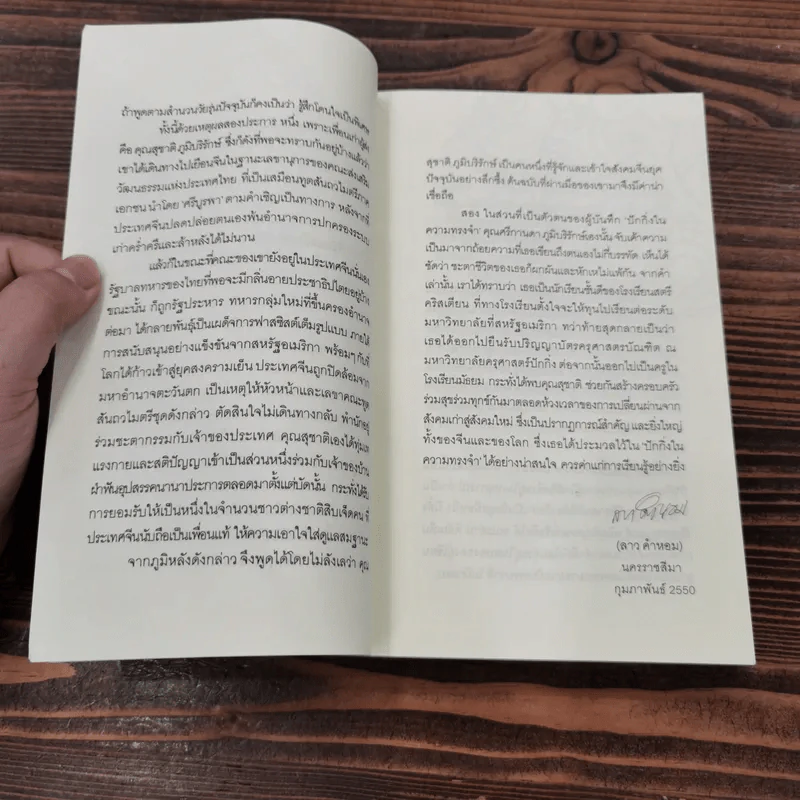 ถ้าพูดตามสำนวนวัยรุ่นปัจจุบันก็คงเป็นว่า รู้สึกโดนใจเป็นพิเศษ
ทั้งนี้ด้วยเหตุผลสองประการ หนึ่ง เพราะเพื่อนเก่าผู้
คือ คุณสุชาติ ภูมิบริรักษ์ ซึ่งก็ดังที่พอจะทราบกันอยู่บ้างแล้วว่า
เขาได้เดินทางไปเยือนจีนในฐานะเลขานุการของคณะส่งเสริม
วัฒนธรรมแห่งประเทศไทย ที่เป็นเสมือนทูตสันถวไมตรีภาค
เอกชน นำโดย 'ศรีบูรพา' ตามคำเชิญเป็นทางการ หลังจากที่
ประเทศจีนปลดปล่อยตนเองพ้นอำนาจการปกครองระบบ
เก่าคร่ำครึและล้าหลังได้ไม่นาน
แล้วก็ในขณะที่คณะของเขายังอยู่ในประเทศจีนนั่นเอง
รัฐบาลทหารของไทยที่พอจะมีกลิ่นอายประชาธิปไตยอยู่บ้าง
ขณะนั้น ก็ถูกรัฐประหาร ทหารกลุ่มใหม่ที่ขึ้นครองอำนาจ
ต่อมา ได้กลายพันธุ์เป็นเผด็จการฟาสซิสต์เต็มรูปแบบ ภายใต้
การสนับสนุนอย่างแข็งขันจากสหรัฐอเมริกา พร้อมๆ กับที่
โลกได้ก้าวเข้าสู่ยุคสงครามเย็น ประเทศจีนถูกปิดล้อมจาก
มหาอำนาจตะวันตก เป็นเหตุให้หัวหน้าและเลขาคณะทูต
สันถวไมตรีชุดดังกล่าว ตัดสินใจไม่เดินทางกลับ พำนักอยู่
ร่วมชะตากรรมกับเจ้าของประเทศ คุณสุชาติเองได้ทุ่มเท
แรงกายและสติปัญญาเข้าเป็นส่วนหนึ่งร่วมกับเจ้าของบ้าน
ฝ่าฟันอุปสรรคนานาประการตลอดมาตั้งแต่บัดนั้น กระทั่งได้รับ
การยอมรับให้เป็นหนึ่งในจำนวนชาวต่างชาติสิบเจ็ดคน ที่
ประเทศจีนนับถือเป็นเพื่อนแท้ ให้ความเอาใจใส่ดูแลสมฐานะ
จากภูมิหลังดังกล่าว จึงพูดได้โดยไม่ลังเลว่า คุณ
สุชาติ ภูมิบริรักษ์ เป็นคนหนึ่งที่รู้จักและเข้าใจสังคมจีนยุค
ปัจจุบันอย่างลึกซึ้ง ต้นฉบับที่ผ่านมือของเขามาจึงมีค่าน่า
เชื่อถือ
สอง ในส่วนที่เป็นตัวตนของผู้บันทึก 'ปักกิ่งใน
ความทรงจำ' คุณศรีกานดา ภูมิบริรักษ์เองนั้น จับเค้าความ
เป็นมาจากถ้อยความที่เธอเขียนถึงตนเองไม่กี่บรรทัด เห็นได้
ชัดว่า ชะตาชีวิตของเธอก็ผกผันและหักเหไม่แพ้กัน จากคำ
เล่านั้น เราได้ทราบว่า เธอเป็นนักเรียนชั้นดีของโรงเรียนสตรี
คริสเตียน ที่ทางโรงเรียนตั้งใจจะให้ทุนไปเรียนต่อระดับ
มหาวิทยาลัยที่สหรัฐอเมริกา ทว่าท้ายสุดกลายเป็นว่า
เธอได้ออกไปยืนรับปริญญาบัตรครุศาสตรบัณฑิต ณ
มหาวิทยาลัยครุศาสตร์ปักกิ่ง ต่อจากนั้นออกไปเป็นครูใน
โรงเรียนมัธยม กระทั่งได้พบคุณสุชาติ ช่วยกันสร้างครอบครัว
ร่วมสุขร่วมทุกข์กันมาตลอดห้วงเวลาของการเปลี่ยนผ่านจาก
สังคมเก่าสู่สังคมใหม่ ซึ่งเป็นปรากฏการณ์สำคัญ และยิ่งใหญ่
ทั้งของจีนและของโลก ซึ่งเธอได้ประมวลไว้ใน 'ปักกิ่งใน
ความทรงจำ' ได้อย่างน่าสนใจ ควรค่าแก่การเรียนรู้อย่างยิ่ง
(ลาว คำหอม)
นครราชสีมา
กุมภาพันธ์ 2550